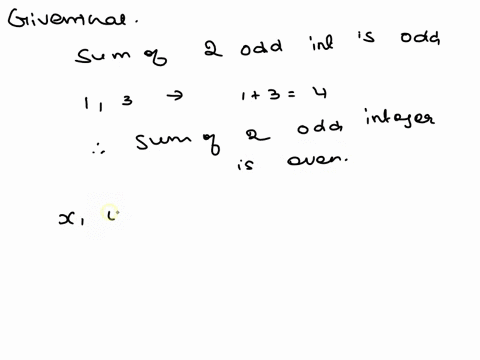 Given that.
Sum of 2 odd int is odd
1, 3 → 1 + 3 = 4
∴ Sum of 2 odd integer
is even.
x,